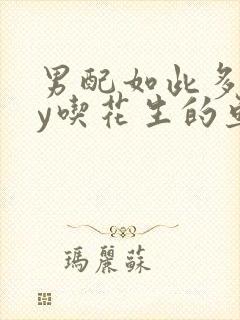 男配如此多
y喫花生的
瑪麗蘇